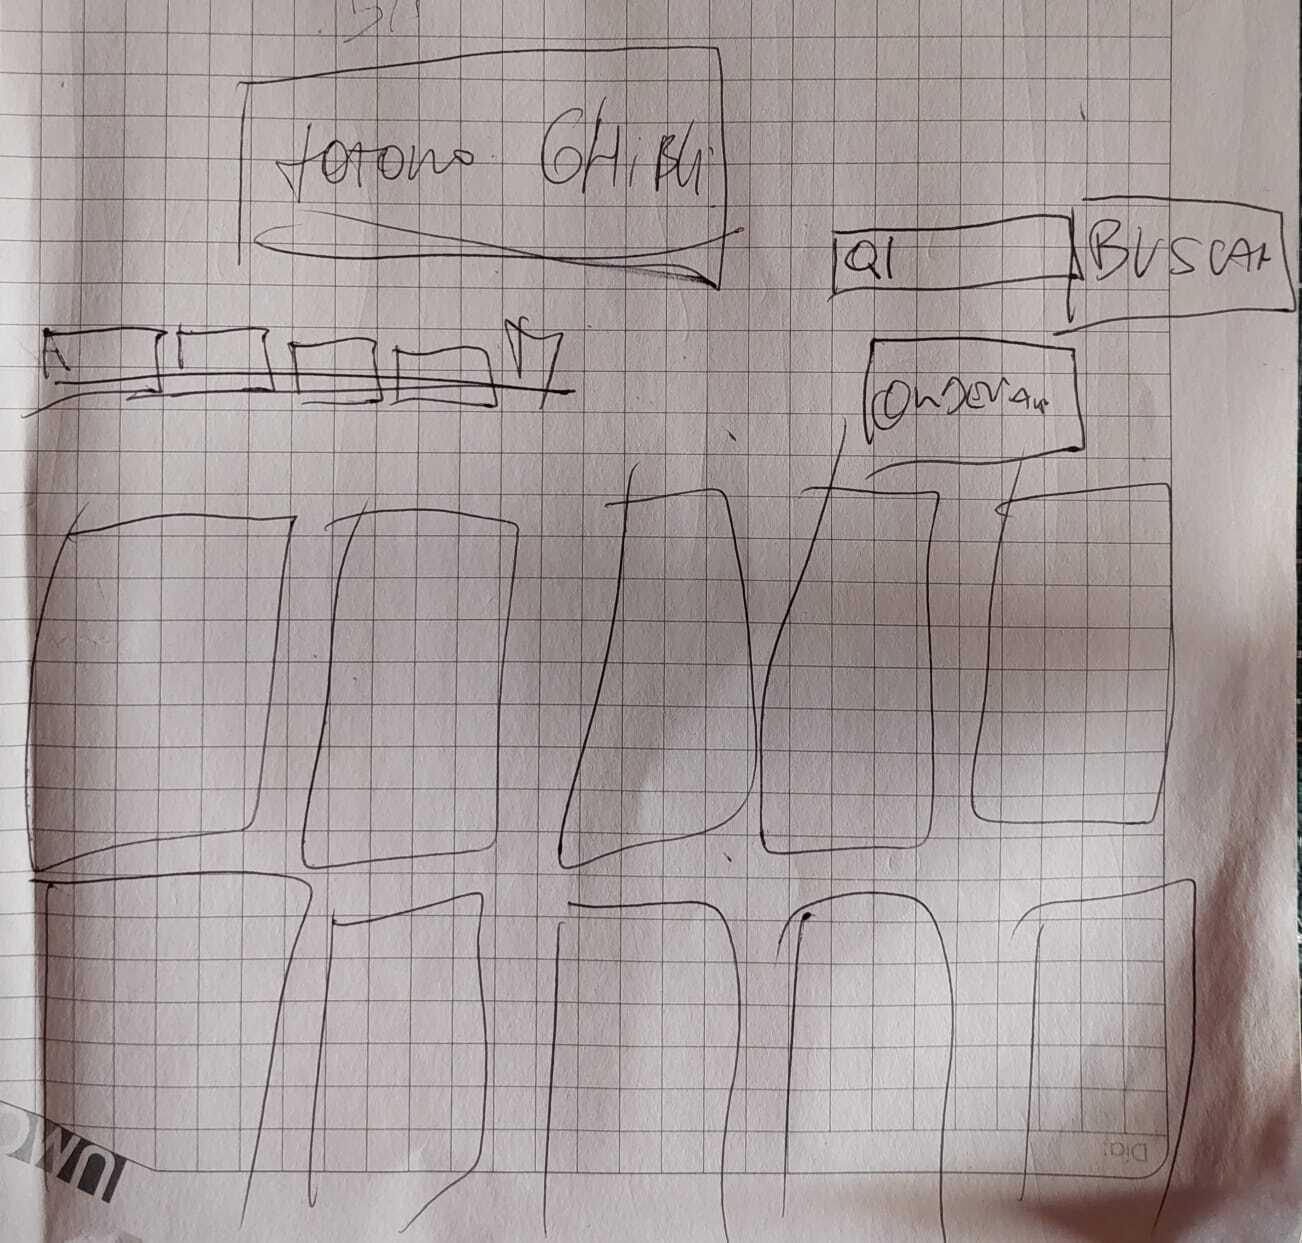 totoro GHiBLi
Q|
BUSCAR
ORDENAR
Día: